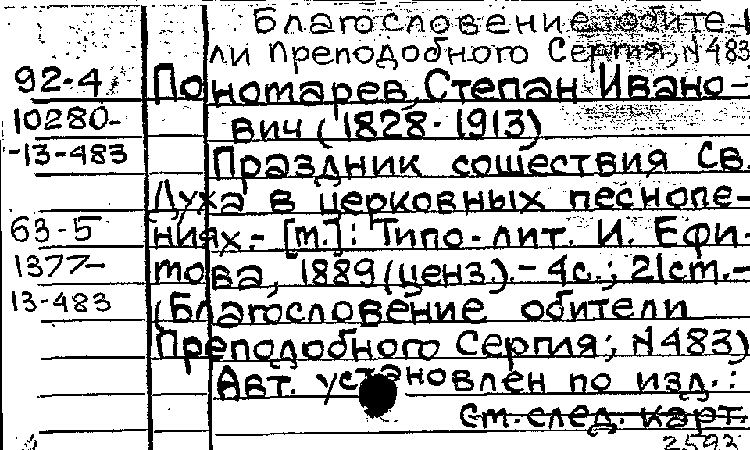 Благословение обите-
ли Преподобного Сергия; N483
92-4 Пономарев, Степан Ивано-
10280- вич (1828-1913)
-13-483 Праздник сошествия Св.
Духа в церковных песнопе-
63-5 ниях.- [м.]: Типо-лит. И. Ефи-
1377- мова, 1889 (ценз.).- 4с.; 21см.-
13-483 (Благословение обители
Преподобного Сергия; N483)
Авт. установлен по изд.:
см. след. карт.
2593